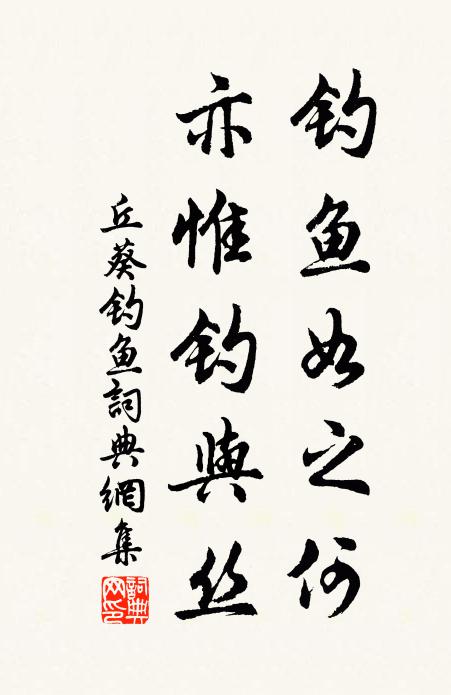 钓鱼如之何
亦惟钓與丝
丘葵钓鱼詞典網集
詞典网印